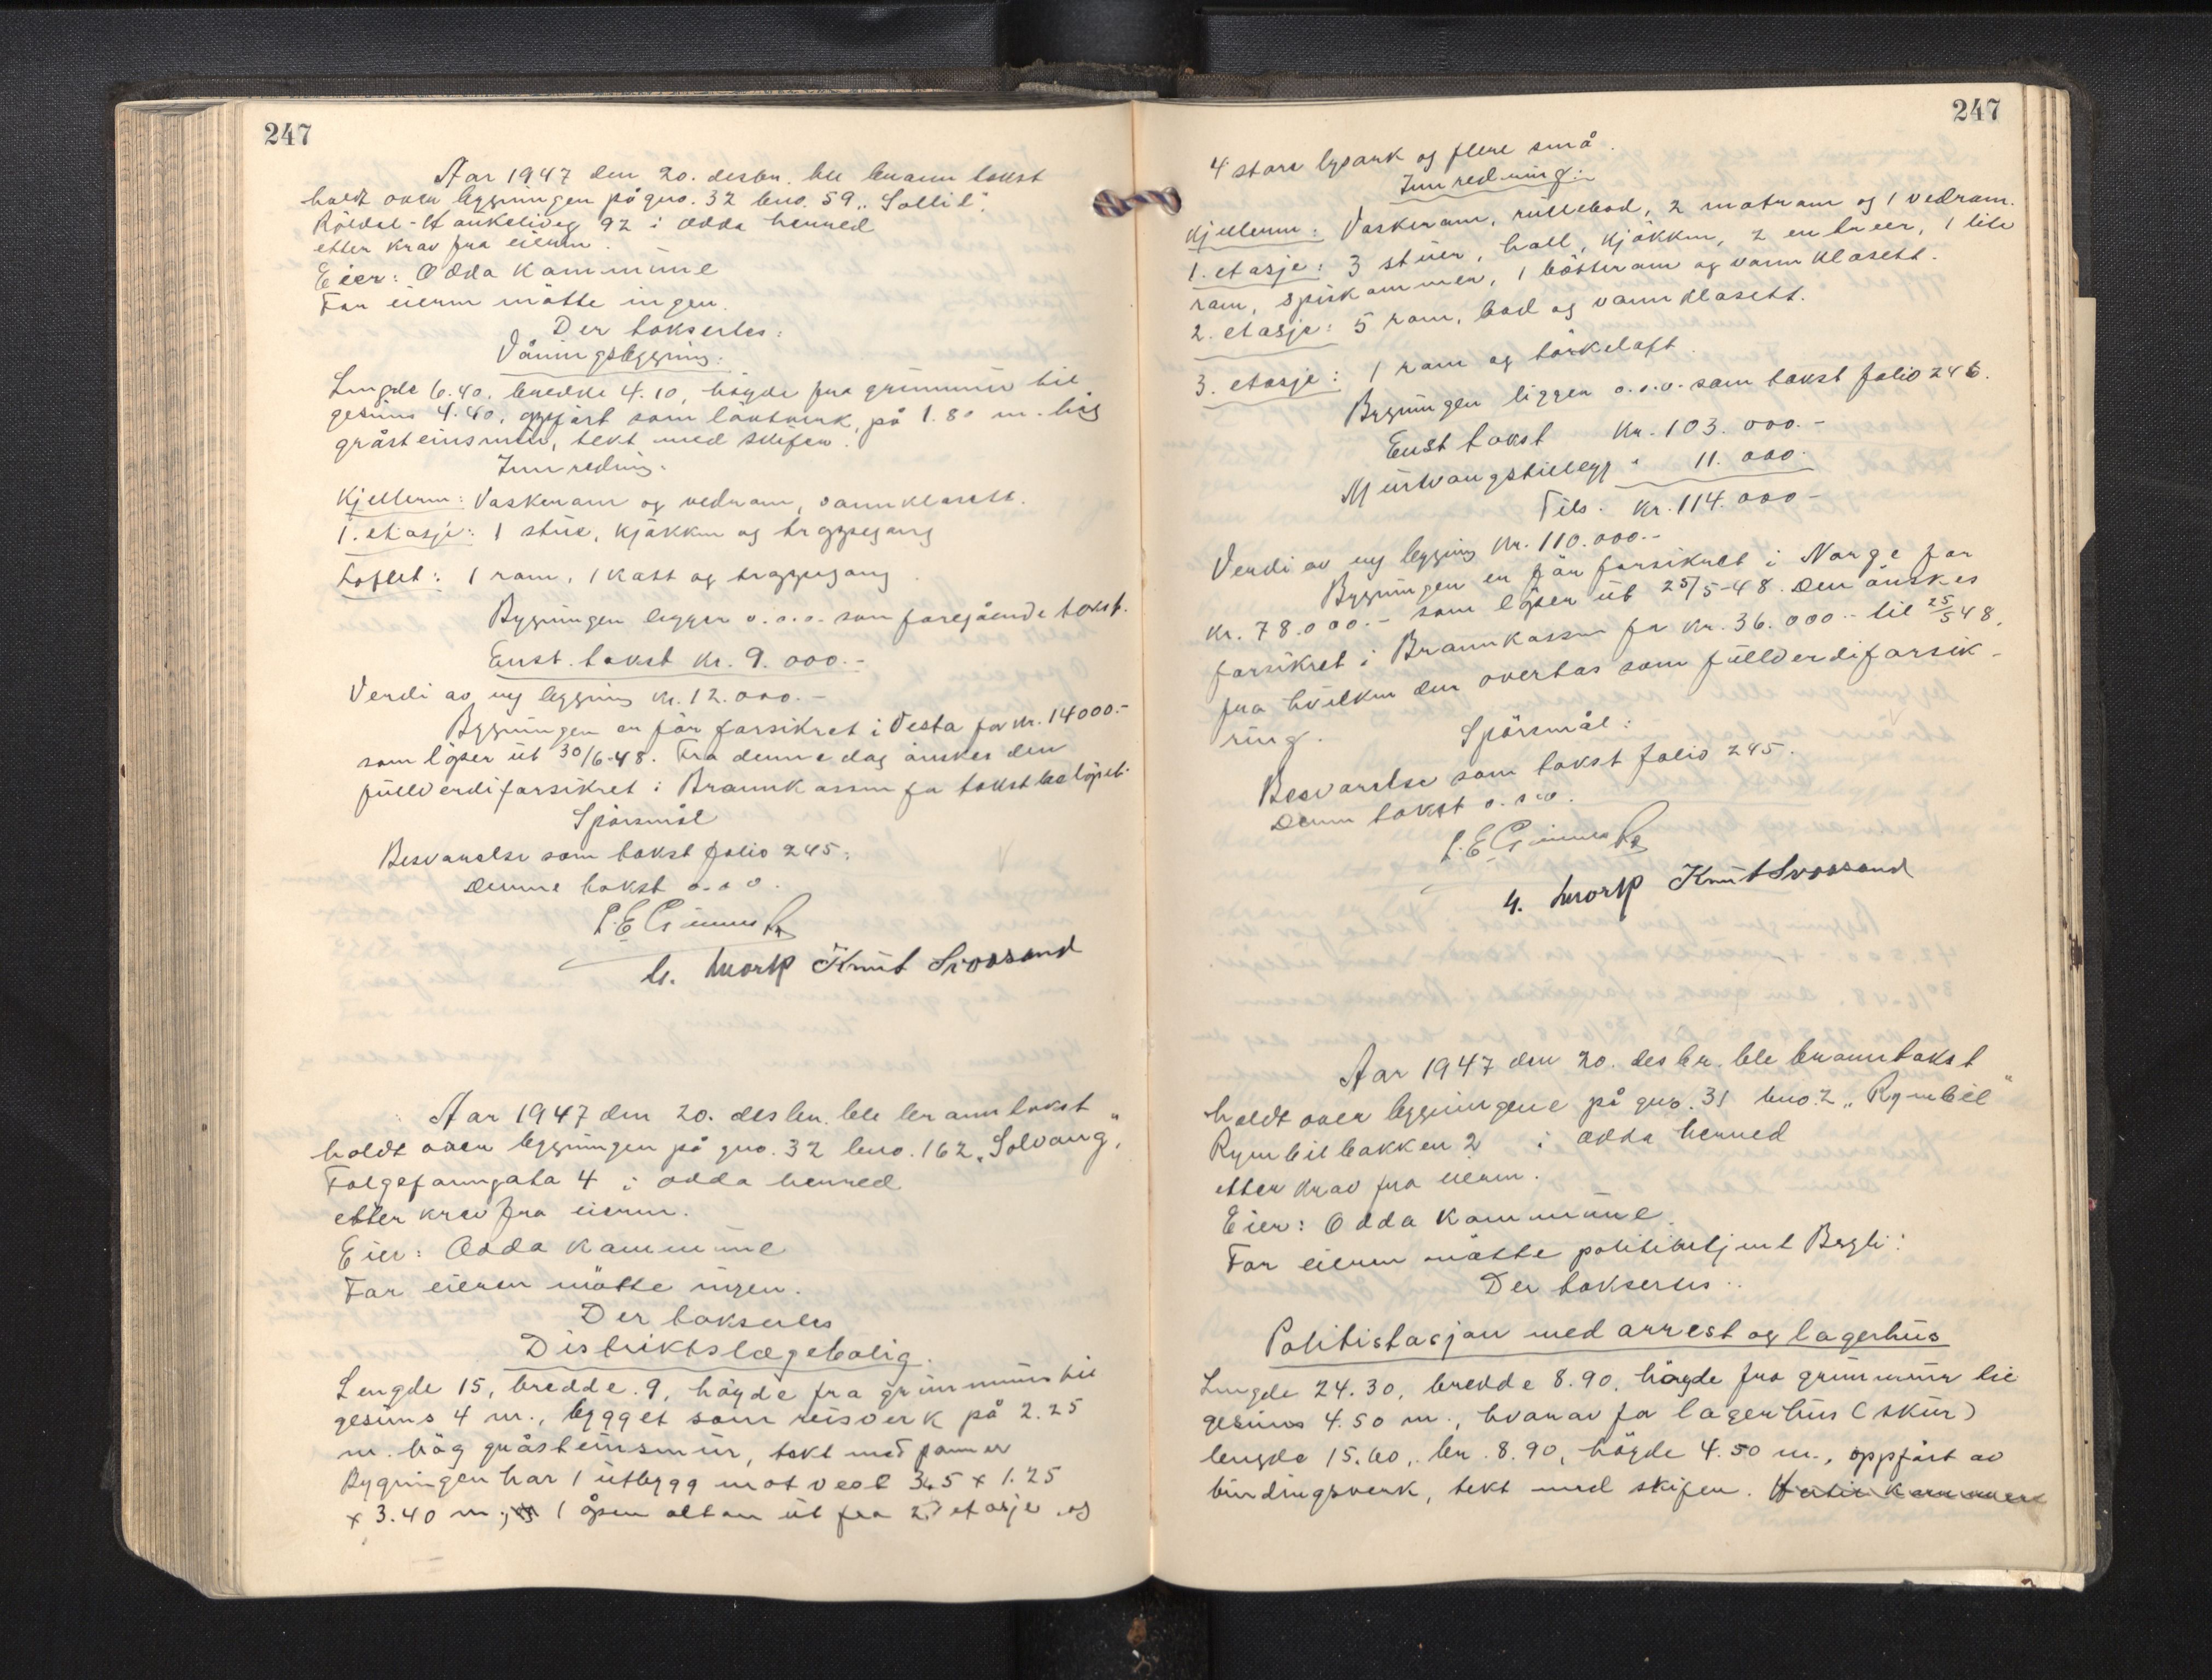 247
Aar 1947 den 20. desbr. ble brann takst
holdt over bygningen på gno. 32 bno. 59 „Sollil".
Röldal-Haukeliveg 92 i Odda herred
etter krav fra eieren.
Eier: Odda Kommune
For eieren mötte ingen.
Der taksertes:
Våningsbygning:
Lengde 6.40, bredde 4.10, höyde fra grunnmur til
gesims 4.40, oppfört som laftverk, på 1.80 m. hög
gråsteinsmur, tekt med skifer.
Innredning.
Kjelleren: Vaskerom og vedrom, vannklosett.
1. etasje: 1 stue, kjökken og trappegang
Loftet: 1 rom, 1 kott og trappegang.
Bygningen ligger o.s.v. som foregående takst.
Enst. takst kr. 9.000.-
Verdi av ny bygning kr. 12.000.-
Bygningen er för forsikret i Vesta for kr. 14000.-
som löper ut 30/6-48. Fra denne dag önskes den
fullverdiforsikret i Brannkassen for takstbelöpet.
Spörsmål
Besvarelse som takst folio 245.
Denne takst o.s.v.
Knut Svossand
Aar 1947 den 20. desbr. ble brann takst
holdt over bygningen på gno. 32 bno. 162 „Solvang",
Folgefonngata 4 i Odda herred
etter krav fra eieren.
Eier: Odda Kommune
For eieren mötte ingen.
Der taksertes
Distriktslægebolig.
Lengde 15, bredde 9, höyde fra grunnmur til
gesims 4 m., bygget som reisverk på 2.25
m. hög gråsteinsmur, tekt med panner
Bygningen har 1 utbygg mot vest 3.5 x 1.25
x 3.40 m., 1 åpen altan ut fra 2. etasje og
247
4 store lysark og flere små.
Innredning:
Kjelleren: Vaskerom, rullebod, 2 matrom og 1 vedrom.
1. etasje: 3 stuer, hall, kjökken, 2 entreer, 1 lite
rom, spiskammer, 1 bötterom og vannklosett.
2. etasje: 5 rom, bad og vannklosett.
3. etasje: 1 rom og törkeloft.
Bygningen ligger o.s.v. som takst folio 246.
Enst takst kr. 103.000.-
Murtvangstillegg " 11.000.
Tils. kr. 114.000-
Verdi av ny bygning kr. 110.000.-
Bygningen er för forsikret i Norge for
kr. 78.000.- som löper ut 25/5-48. Den önskes
forsikret i Brannkassen for kr. 36.000.- til 25/5 48,
fra hvilken den overtas som fullverdiforsik-
ring.
Spörsmål:
Besvarelse som takst folio 245.
Denne takst o.s.v.
Knut Svossand
Aar 1947 den 20. desbr. ble branntakst
holdt over bygningene på gno. 31 bno. 2 „Rymbil"
Rymbilbakken 2 i Odda herred
etter krav fra eieren.
Eier: Odda Kommune.
For eieren mötte politibetjent Bagli:
Der taksertes..
Politistasjon med arrest og lagerhus
Lengde 24.30, bredde 8.90, höyde fra grunnmur til
gesims 4.50 m., hvorav for lagerhus (skur)
lengde 15.60, br. 8.90, höyde 4.50 m., oppfört av
bindingsverk, tekt med skifer.